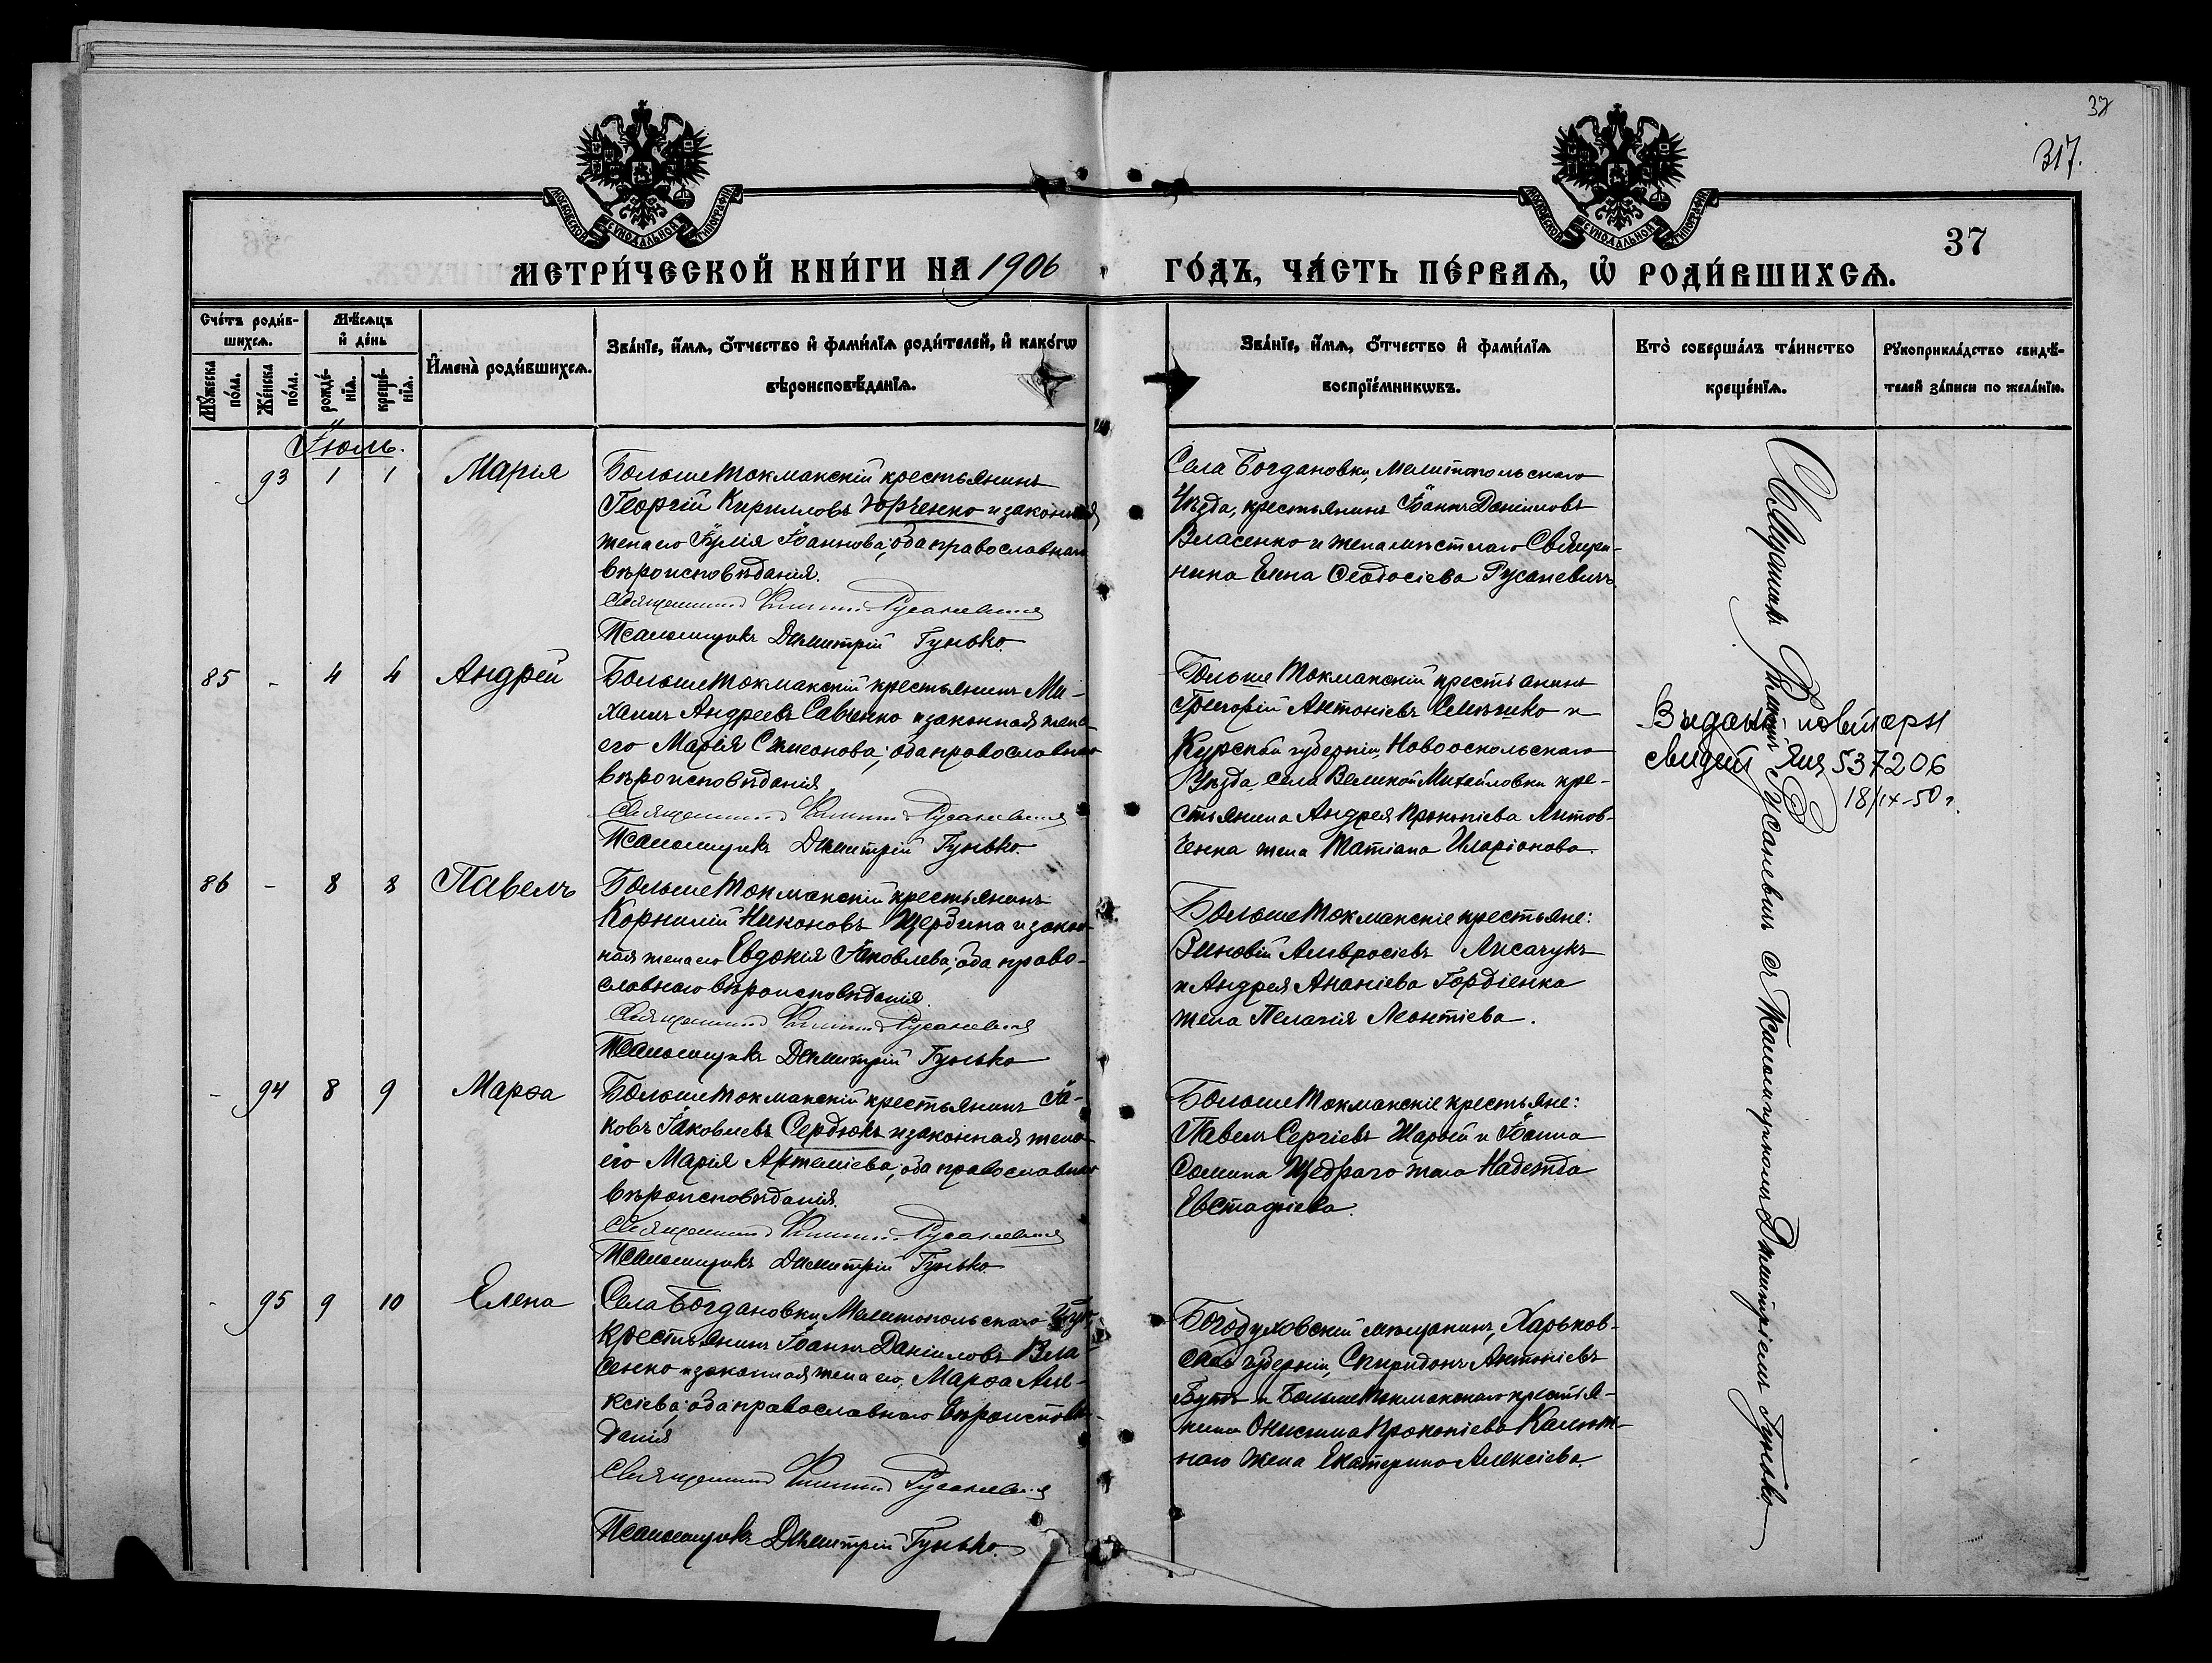 37
317.
МОСКОВСКОЙ СѴНОДАЛЬНОЙ ТИПОГРАФІИ
МОСКОВСКОЙ СѴНОДАЛЬНОЙ ТИПОГРАФІИ
37
МЕТРИ́ЧЕСКОЙ КНИ́ГИ НА 1906 ГО́ДЪ, ЧА́СТЬ ПЕ́РВАѦ, Ѽ РОДИ́ВШИХСѦ.
Сче́тъ роди́в-
шихсѧ.
Мꙋ́жеска по́ла.
Же́нска по́ла.
Мѣ́сѧцъ
и҆ де́нь
рожде́-
нїѧ.
креще́-
нїѧ.
И҆мена̀ роди́вшихсѧ.
Зва́нїе, и҆́мѧ, ѻ҆́тчество и҆ фами́лїѧ роди́телей, и҆ како́гѡ
вѣроисповѣ́данїѧ.
Зва́нїе, и҆́мѧ, ѻ҆́тчество и҆ фами́лїѧ
воспрїе́мникѡвъ.
Кто̀ соверша́лъ та́инство
креще́нїѧ.
Рꙋкоприкла́дство свидѣ́-
телей за́писи по жела́нїю.
Іюль.
- 93 1 1 Марія
Больше Токмакскій крестьянинъ
Георгій Кирилловъ Юрченко и законная
жена его Іулія Іоаннова; оба православнаго
вѣроисповѣданія.
Священникъ Филиппъ Русаневичъ
Псаломщикъ Димитрій Гунько.
Села Богдановки, Мелитопольскаго
Уѣзда, крестьянинъ Іоаннъ Даніиловъ
Власенко и жена мѣстнаго Священ-
ника Елена Ѳеодосіева Русаневичъ.
85 - 4 4 Андрей
Больше Токмакскій крестьянинъ Ми-
хаилъ Андреевъ Савченко и законная жена
его Марія Симеонова; оба православнаго
вѣроисповѣданія.
Священникъ Филиппъ Русаневичъ
Псаломщикъ Димитрій Гунько.
Больше Токмакскій крестьянинъ
Григорій Антоніевъ и
Курской губерніи, Новооскольскаго
Уѣзда, села Великой Михайловки кре-
стьянина Андрея Прокопіева Литов-
ченка жена Татіана Иларіонова.
86 - 8 8 Павелъ
Больше Токмакскій крестьянинъ
Корнилій Никоновъ Щербина и закон-
ная жена его Евдокія Іаковлева; оба право-
славнаго вѣроисповѣданія.
Священникъ Филиппъ Русаневичъ
Псаломщикъ Димитрій Гунько
Больше Токмакскіе крестьяне:
Зиновій Амвросіевъ Лисачукъ
и Андрея Ананіева Гордіенка
жена Пелагія Леонтіева.
- 94 8 9 Марѳа
Больше Токмакскій крестьянинъ Іа-
ковъ Іаковлевъ Сердюкъ и законная жена
его Марія Артеміева; оба православнаго
вѣроисповѣданія.
Священникъ Филиппъ Русаневичъ
Псаломщикъ Димитрій Гунько.
Больше Токмакскіе крестьяне:
Павелъ Сергіевъ Шарый и Іоанна
Ѳомина Щедраго жена Надежда
Евстафіева.
- 95 9 10 Елена
Села Богдановки, Мелитопольскаго
крестьянинъ Іоаннъ Даніиловъ Вла-
сенко и законная жена его, Марѳа Але-
ксіева; оба православнаго вѣроисповѣ-
данія
Священникъ Филиппъ Русаневичъ
Псаломщикъ Димитрій Гунько.
Богодуховскій мѣщанинъ, Харьков-
ской губерніи, Спиридонъ Антоніевъ
и Больше Токмакскаго крестья-
нина Онисима Прокопіева Калюж-
наго жена Екатерина Алексіева.
Священникъ Филиппъ Русаневичъ съ Псаломщикомъ Димитріемъ Гунько
537206
18/IX-50 г.